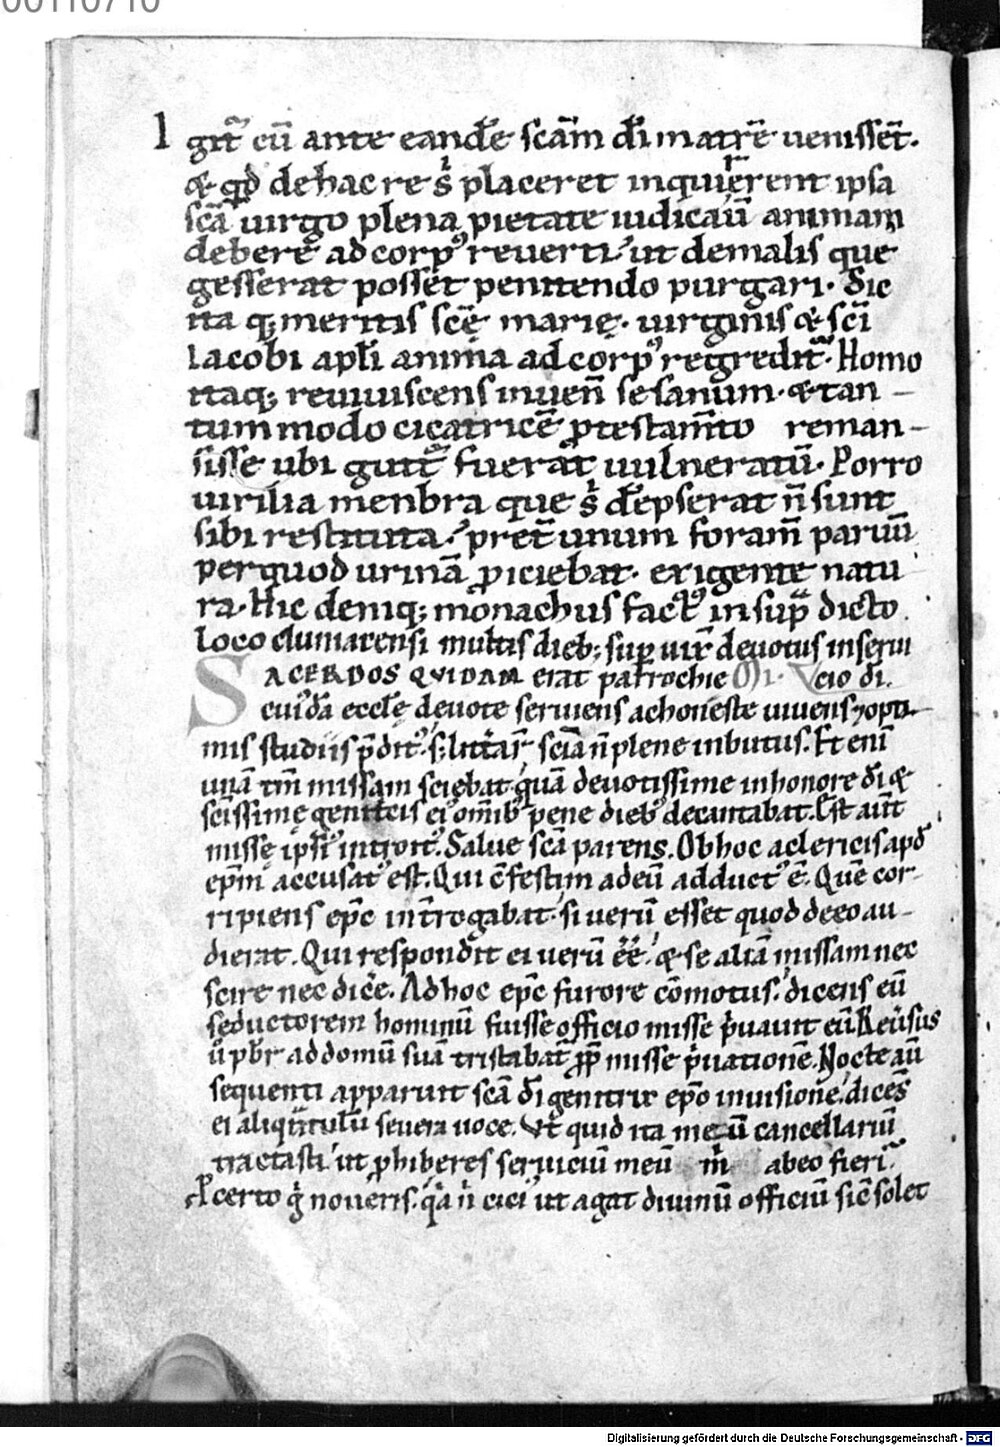 00110710
Igit̄ cū ante eandē scām dī matrē venissēt.
& qd̄ de hac re s̄ placeret inquirerent ipsa
scā uirgo plena pietate iudicauit̄ animam
debere ad corp⁹ reuerti ut de malis que
gesserat posset penitendo purgari. Sic
ita q; meritis scę̄ marię. uirginis & scī
iacobi aplī anima ad corp⁹ regredit̄. Homo
itaq; reuiuiscens inueñ se sanum. & tan–
tummodo cicatricē p̱ testam̄to reman–
sisse ubi guttur fuerat uulneratū. Porro
uirilia menbra que s̄ dēpserat n̄ sunt
sibi restituta. pret̄ unum foram̄ paruū
per quod urinā ꝓiciebat. exigente natu
ra. Hic deniq; monachus fact⁹ in sup̄ dicto
loco clumacensi multis dieb; sup uix̄ deuotus inserui
SACERDOS QVIDAM erat parrochie
cuidā eccłę deuote seruiens ac honeste uiuens ⁊ opti–
mis studiis p̄dit⁹. s; litt̄ar̄ sciā n̄ plene inbutus. Et enī
unā tm̄ missam sciebat quā deuotissime in honore dī &
scīssimę genitricis ei⁹ omīb; pene dieb⁹ decantabat. Est aūt
missę ipsi⁹ introit⁹. Salue scā parens. Ob hoc a clericis apd̄
epm̄ accusat⁹ est. Qui c̄festim ad eū adduct⁹ ē. Quē cor–
ripiens epc̄ int̄rogabat. si uerū esset quod de eo au–
dierat. Qui respondit ei uerū ēē. & se aliā missam nec
scire nec dicē. Ad hoc epc̄ furore cōmotus. dicens eū
seductorem hominū fuisse officio misse p̄uauit eū. Reūsus
ū pbr̄ ad domū suā tristabat̄ ꝓp̄ misse p̄uationē. Nocte aū
sequenti apparuit scā dī genitrix epō in uisione. dicēs
ei aliqn̄tulū seuera uoce. Vt quid ita meū cancellariū
tractasti ut ꝓhiberes seruiciū meū m̄ abeo fieri.
P certo g̊ noueris. q̄a n̄ cici⁹ ut agat diuinū officiū sic̄ solet
Digitalisierung gefördert durch die Deutsche Forschungsgemeinschaft - DFG